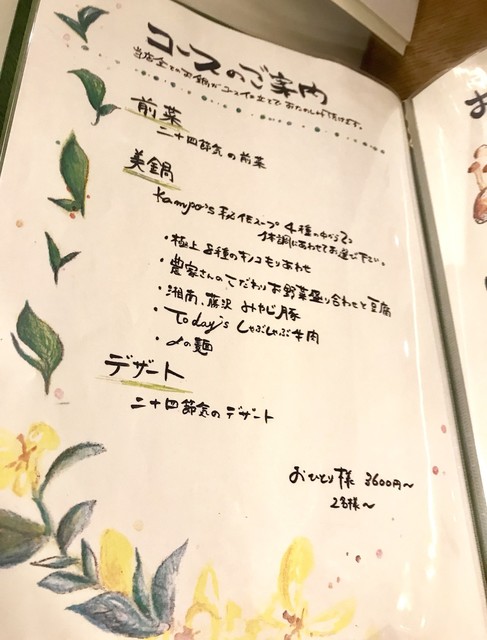 コースのご案内
当店全てのお鍋がコース仕立てでおたのしみ頂けます。
前菜
二十四節気の前菜
美鍋
Kampo's 秘伝スープ 4種の中から2つ
体調にあわせてお選び下さい。
・極上 8種のキノコもりあわせ
・農家さんのこだわりお野菜盛り合わせと豆腐
・湘南、藤沢 みやじ豚
・Today's しゃぶしゃぶ牛肉
・〆の麺
デザート
二十四節気のデザート
おひとり様 3600円〜
2名様〜
お